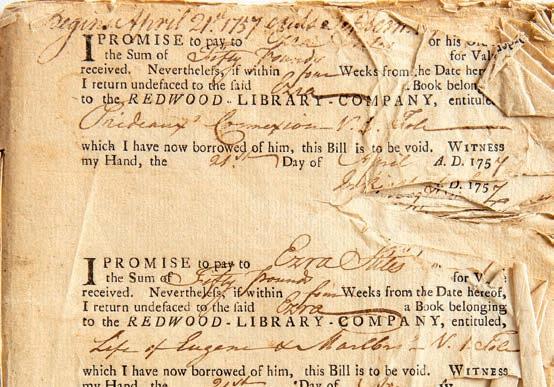 Begins April 21st 1757
I PROMISE to pay to Ezra Stiles or his
the Sum of Fifty Pounds for Val
received. Nevertheless, if within four Weeks from the Date her
I return undefaced to the said Ezra a Book belon
to the REDWOOD-LIBRARY-COMPANY, entitule
Prideaux's Connexion V. 1. Fol
which I have now borrowed of him, this Bill is to be void. WITNESS
my Hand, the 21st Day of April A. D. 1757
A. D. 1757
I PROMISE to pay to Ezra Stiles
the Sum of Fifty Pounds for V
received. Nevertheless, if within four Weeks from the Date hereof,
I return undefaced to the said Ezra a Book belonging
to the REDWOOD-LIBRARY-COMPANY, entituled,
Life of Eugene & Marlbro' V. 1 Fol
which I have now borrowed of him, this Bill is to be void. WITNESS
my Hand, the 21st Day of